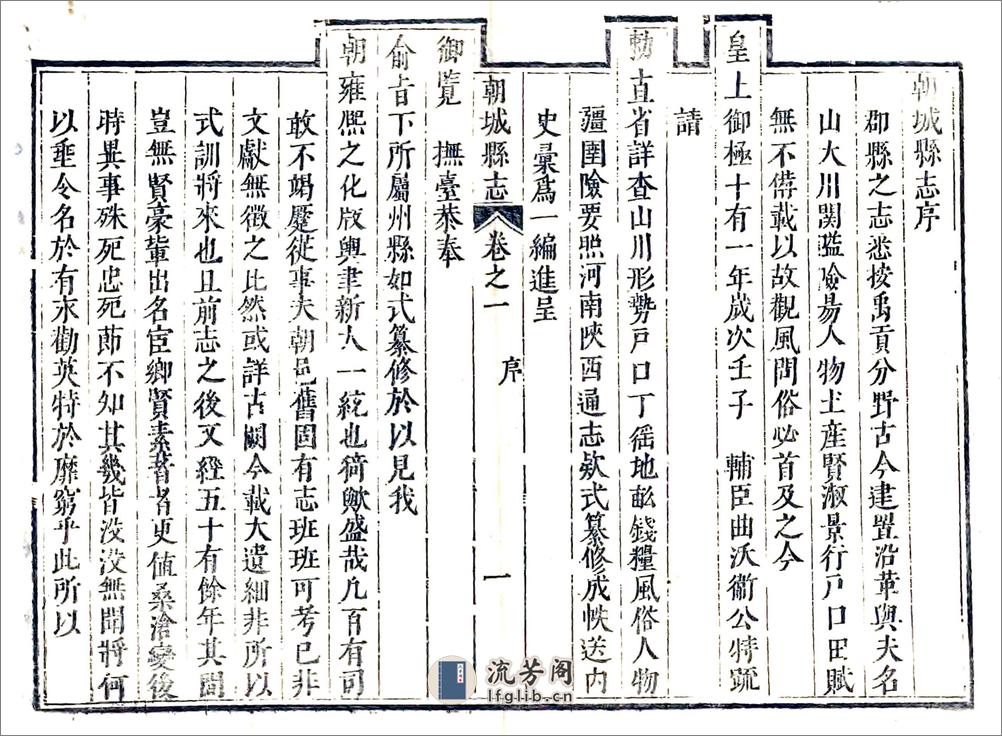 朝城縣志序
郡縣之志悉按禹貢分野古今建置沿革與夫名
山大川関溢險易人物土產賢淑景行戶口田賦
無不俻載以故觀風問俗必首及之今
皇上御極十有一年歲次壬子 輔臣曲沃衞公特疏
請
勅直省詳查山川形勢戶口丁徭地畝錢糧風俗人物
疆圉險要照河南陝西通志欵式纂修成帙送內
史彙爲一編進呈
朝城縣志 卷之一 序 一
御覽 撫臺恭奉
俞旨下所屬州縣如式纂修於以見我
朝雍熈之化版輿聿新大一統也猗歟盛哉凡百有司
敢不竭蹷從事夫朝邑舊固有志班班可考已非
文獻無徵之比然或詳古闕今載大遺細非所以
式訓將來也且前志之後又經五十有餘年其間
豈無賢豪輩出名宦鄉賢素著者更値桑滄變後
時異事殊死忠死節不知其幾皆没没無聞將何
以垂令名於有永勸英特於靡窮乎此所以
流芳阁
lfglib.cn